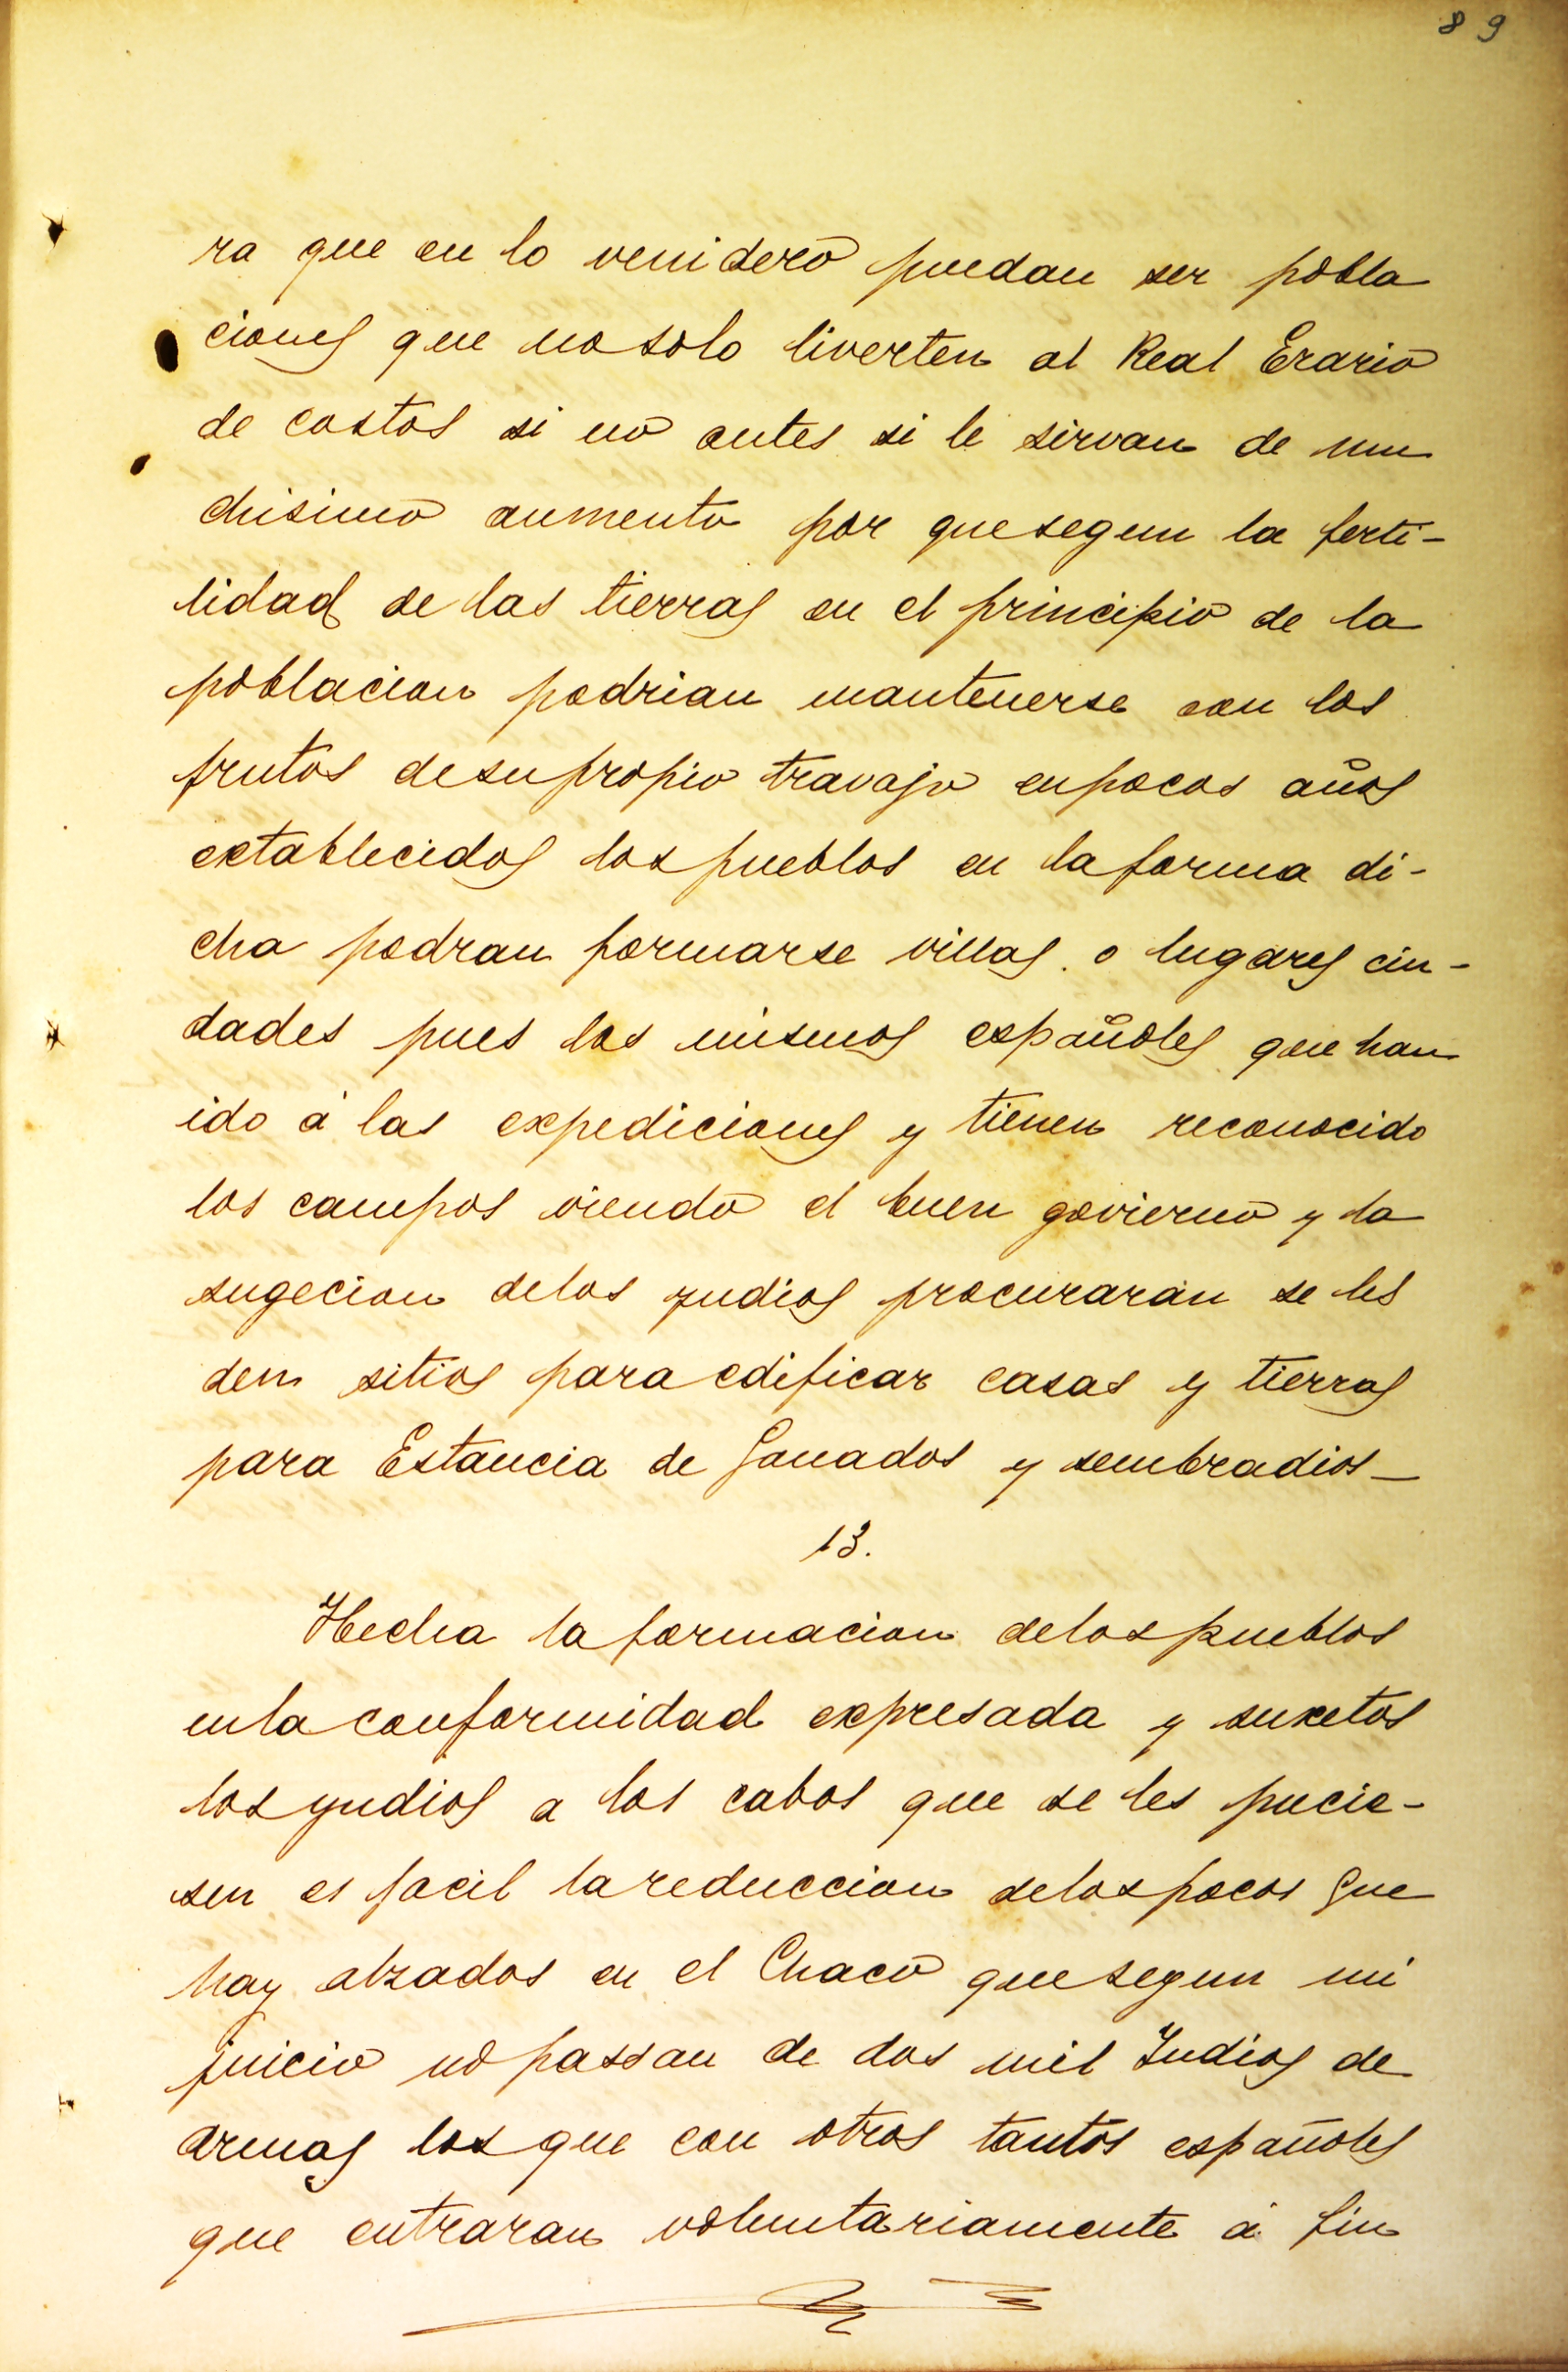 89
ra que en lo venidero puedan ser pobla
ciones que no solo liverten al Real Erario
de costos si no antes si le sirvan de mu
chisimo aumento por quesegun la ferti-
lidad de las tierras en el principio de la
poblacion podrian mantenerse con los
frutos desupropio travajo enpocos años
extablecidos los pueblos en la forma di-
cha podran formarse villas o lugares ciu-
dades pues los mismos españoles que han
ido á las expediciones y tienen reconocido
los campos viendo el buen govierno y la
sugecion delos yndios procurarán se les
den sitios para edificar casas y tierras
para Estancia de Ganados y sembradios_
13.
Hecha la formacion delospueblos
enla conformidad expresada y suxetos
los yndios a los cabos que se les pucie-
sen es facil la reduccion delospocos que
hay alzados en el Chaco quesegun mi
juicio no passan de dos mil Indios de
armas los que con otros tantos españoles
que entraran voluntariamente á fin